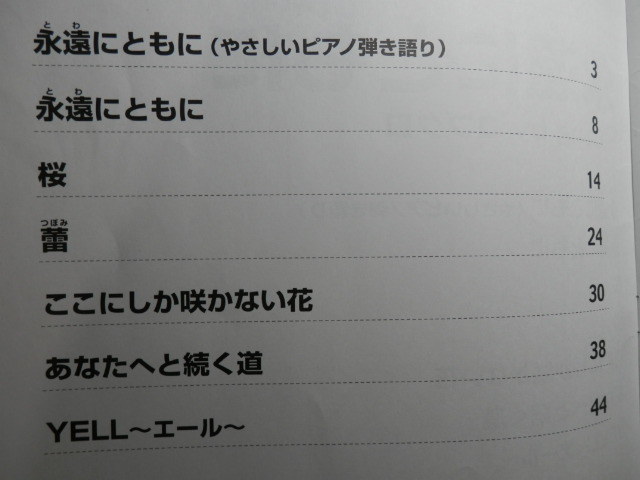 永遠にともに（やさしいピアノ弾き語り） 3
永遠にともに 8
桜 14
蕾 24
ここにしか咲かない花 30
あなたへと続く道 38
YELL～エール～ 44